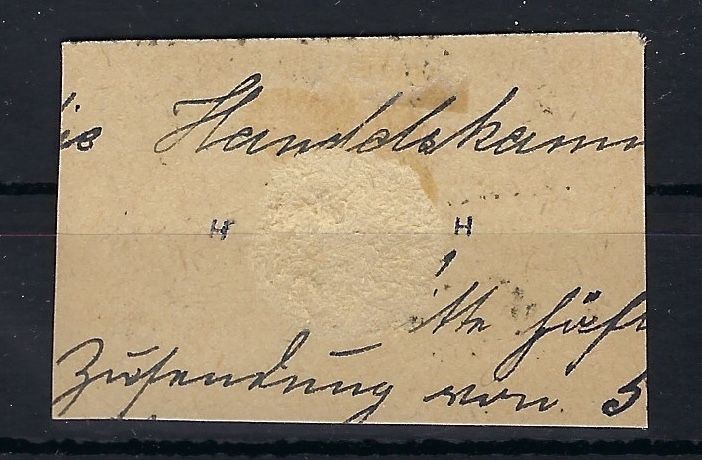 die Handelskamm
H H
itte höfl
Zusendung von 5